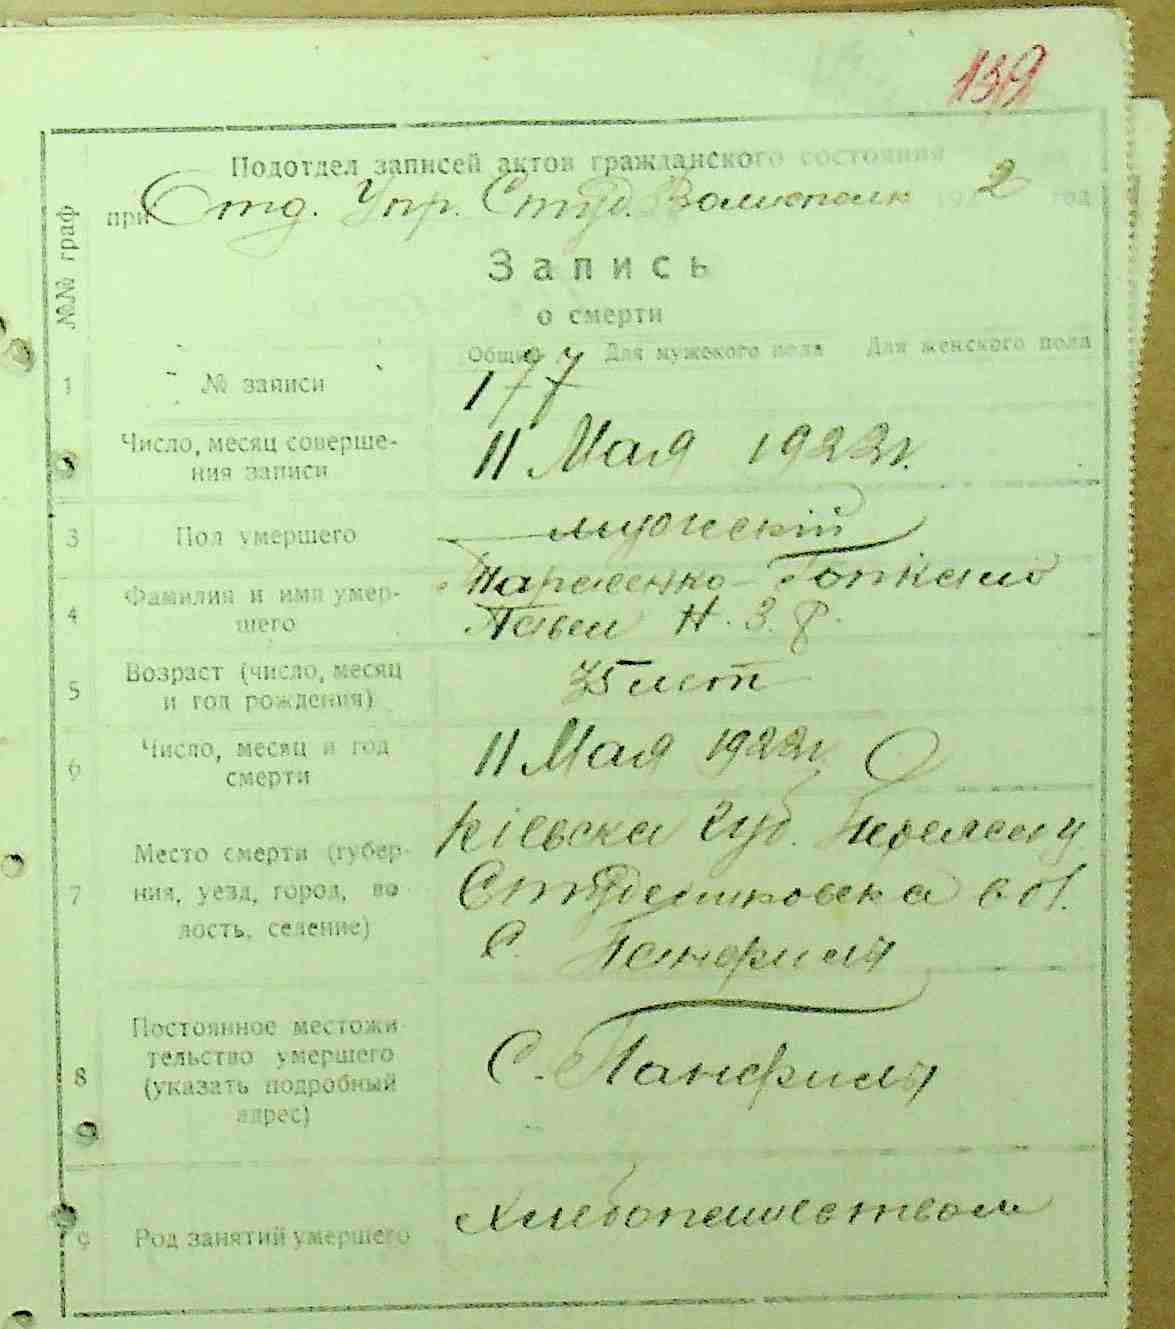 139
Подотдел записей актов гражданского состояния
при Отд. Упр. Студ. Волисполк 192 2 год
№№ граф
Запись
о смерти
Общий Для мужского пола Для женского пола
1 № записи 177
Число, месяц соверше-
ния записи 11 Мая 1922 г.
3 Пол умершего мужескій
4 Фамилия и имя умер-
шего
Пармено- Павел Н. З. Р.
5 Возраст (число, месяц
и год рождения) 75 лет
6 Число, месяц и год
смерти 11 Мая 1922 г
7 Место смерти (губер-
ния, уезд, город, во
лость, селение)
Кіевска Губ. Переяс. у
вол.
С. Панфилы
8 Постоянное местожи
тельство умершего
(указать подробный
адрес)
С. Панфилы
9 Род занятий умершего Хлебопашеством